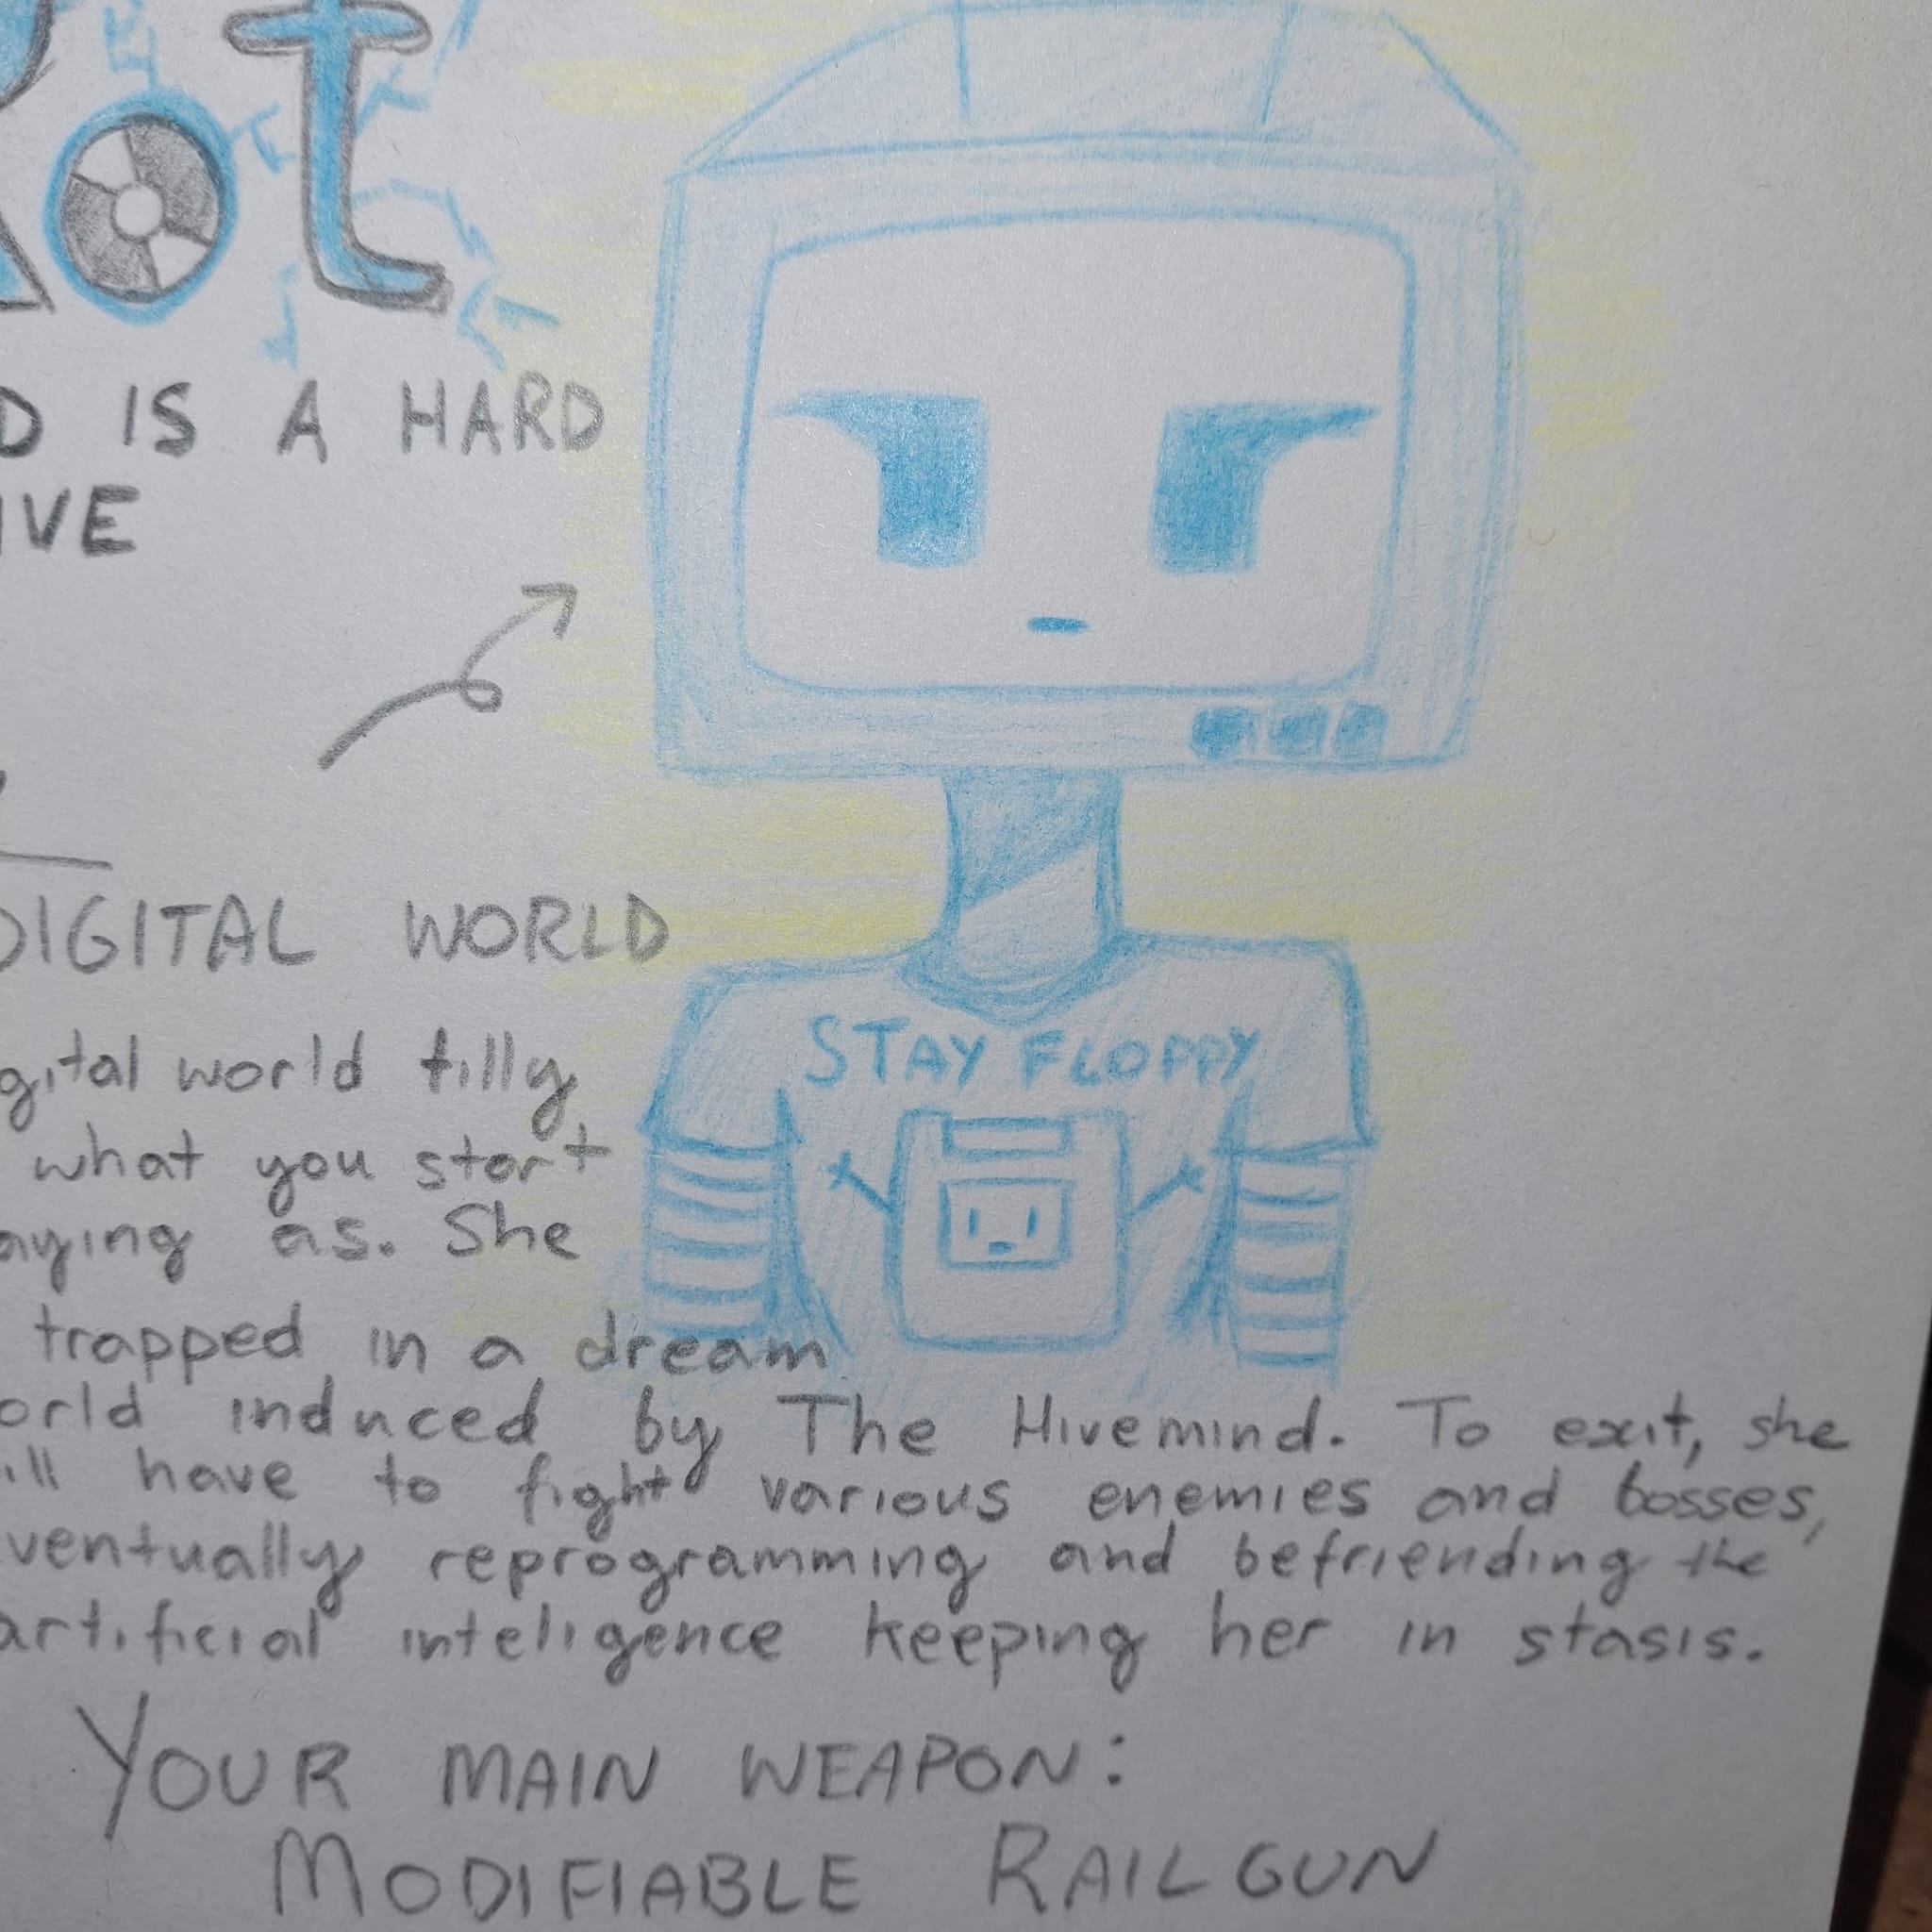 Rot
D IS A HARD
IVE
DIGITAL WORLD
gital world tilly
what you start
aying as. She
trapped in a dream
orld induced by The Hivemind. To exit, she
ill have to fight various enemies and bosses,
ventually reprogramming and befriending the
artificial inteligence keeping her in stasis.
YOUR MAIN WEAPON:
MODIFIABLE RAILGUN
STAY FLOPPY